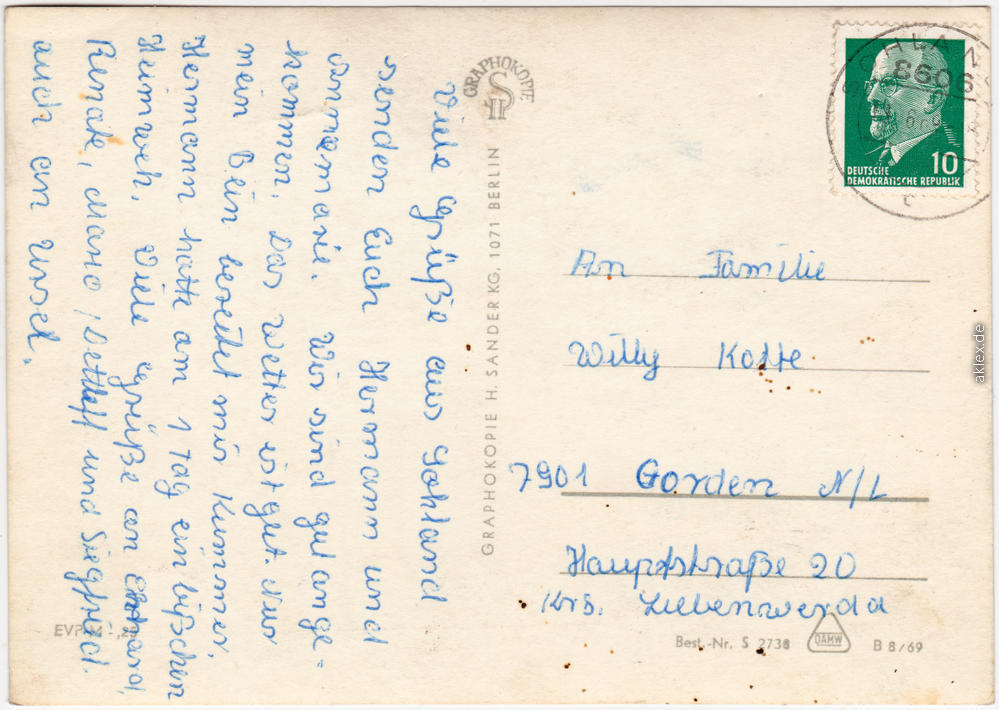 Viele Grüße aus Sohland
senden Euch Hermann und
Annemarie. Wir sind gut ange-
kommen. Das Wetter ist gut. Nur
mein Bein bereitet mir Kummer.
Hermann hatte am 1 Tag ein bißchen
Heimweh. Viele Grüße an
Renate, Mario, Dettleff und Siegfried.
auch an Ursel.
EVP
GRAPHOKOPIE
H S
GRAPHOKOPIE H. SANDER KG, 1071 BERLIN
8606
10
DEUTSCHE
DEMOKRATISCHE REPUBLIK
An Familie
Willy Kotte
7901 Gorden N/L
Hauptstraße 20
Krs. Liebenwerda
Best.-Nr. S 2736
DAMW
B 8/69
aklex.de